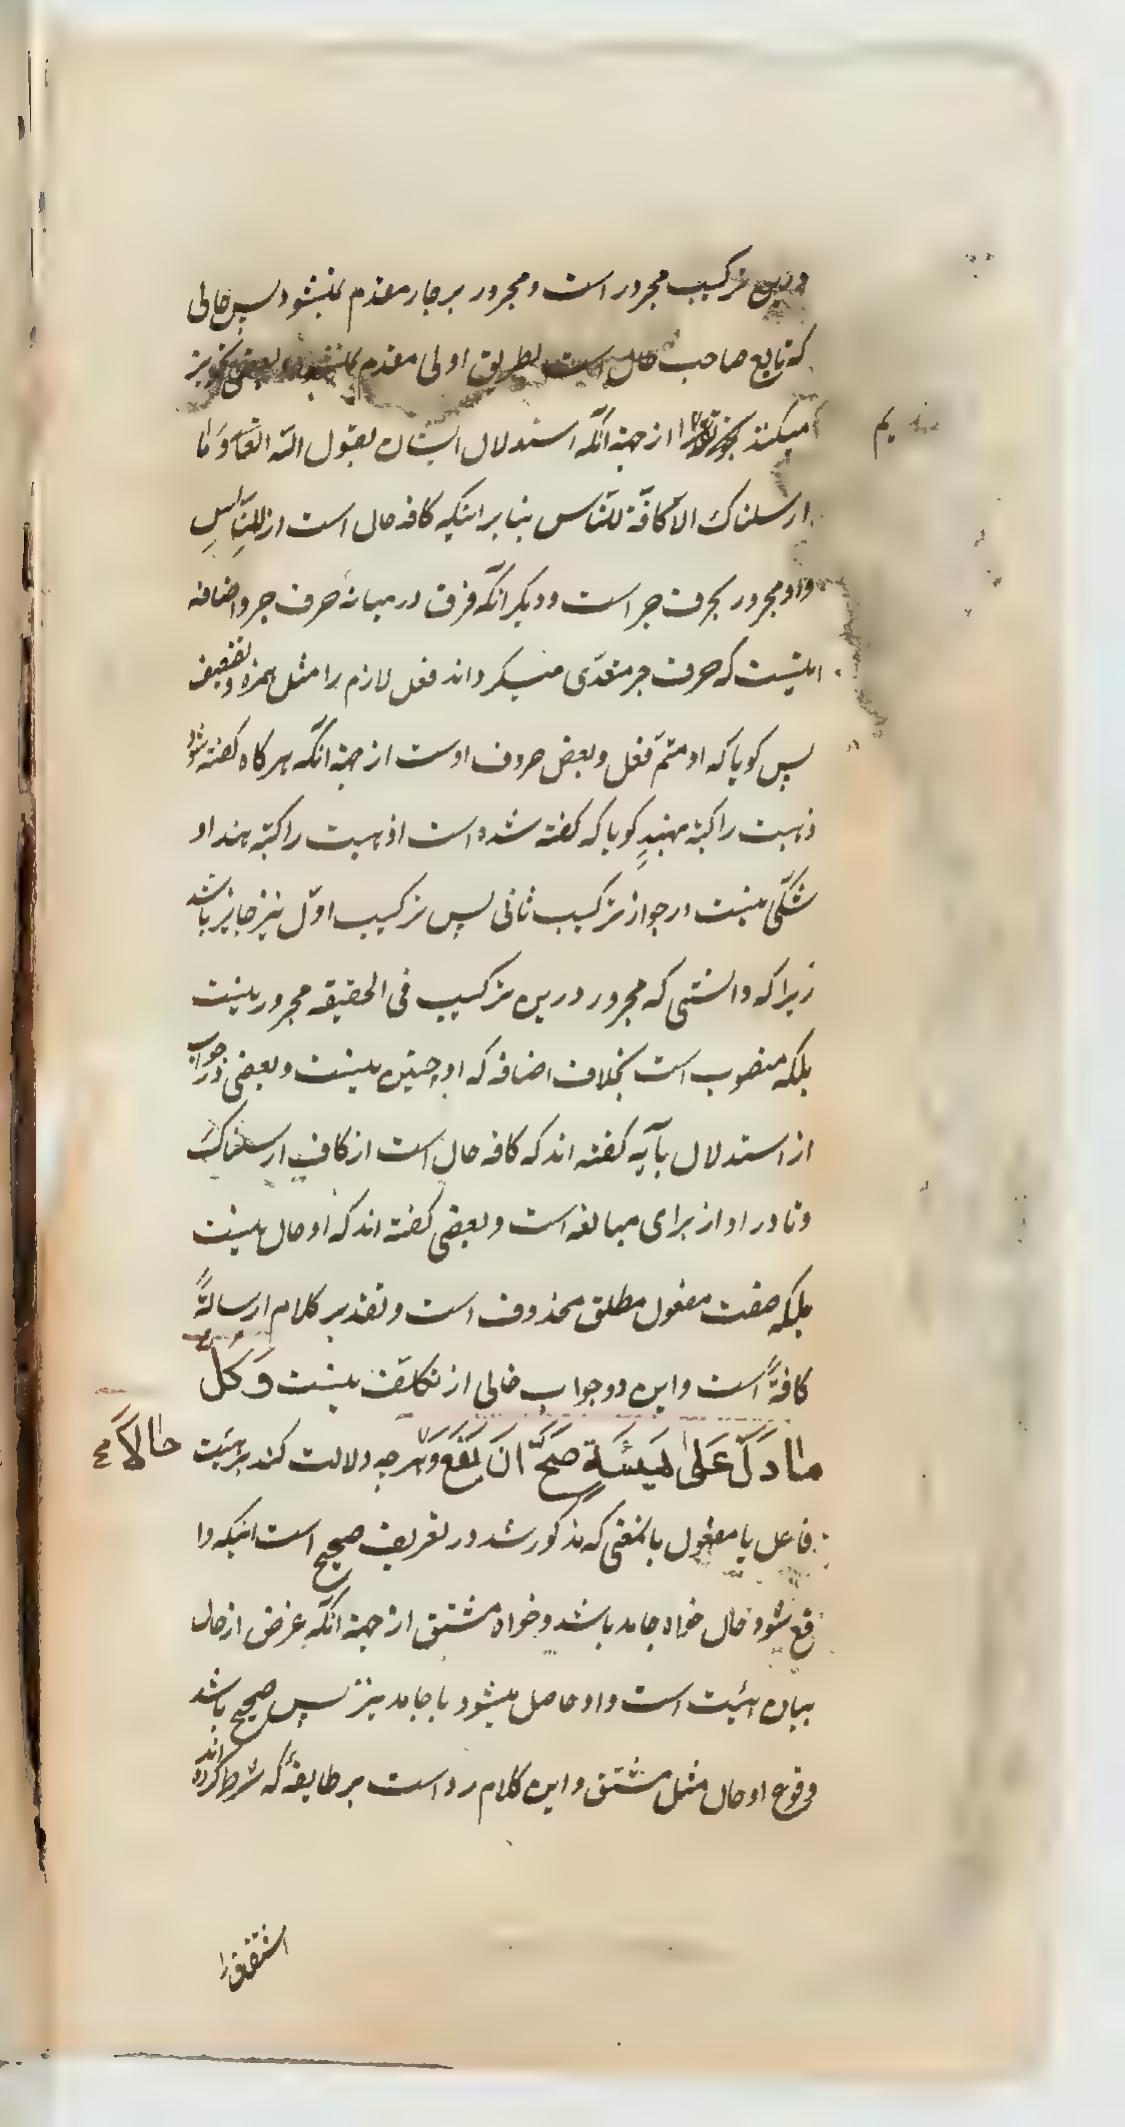 درین ترکیب مجرور است و مجرور بر جار مقدم نمیشود پس حالی
که تابع صاحب حال است بطریق اولی مقدم نمیشود و بعضی تجویز
میکنند از جهة آنکه استدلال ایشان بقول الله تعالی وَمَا
ارسلناک الا کافّة للنّاس بنا بر اینکه کافه حال است از للنّاسِ
و او مجرور بحرف جر است و دیگر آنکه فرق در میانهٔ حرف جر و اضافه
اینست که حرف جر متعدّی میگرداند فعل لازم را مثل همزه و تضعیف
پس گویا که او متمّم فعل و بعض حروف اوست از جهة آنکه هرگاه گفته شود
ذهبت راکبة بهندٍ گویا که گفته شده است اذهبت راکبة هندا و
شکّی نیست در جواز ترکیب ثانی پس ترکیب اوّل نیز جایز باشد
زیرا که دانستی که مجرور درین ترکیب فی الحقیقه مجرور نیست
بلکه منصوب است بخلاف اضافه که او چنین نیست و بعضی در جواب
از استدلال بآیه گفته اند که کافه حال است از کاف ارسلناک
و تا در او از برای مبالغه است و بعضی گفته اند که او حال نیست
بلکه صفت مفعول مطلق محذوف است و تقدیر کلام ارسالةً
کافةً است و این دو جواب خالی از تکلّف نیست وَ کُلُّ
ما دَلَّ عَلیٰ هَیئَةٍ صَحَّ اَن یَقَعَ حالاً و هر چه دلالت کند بر هیئت
فاعل یا مفعول بالمعنی که مذکور شد در تعریف صحیح است اینکه وا
قع شود حال خواه جامد باشد و خواه مشتق از جهة آنکه غرض از حال
بیان هیئت است و او حاصل میشود با جامد نیز پس صحیح باشد
وقوع او حال مثل مشتق و این کلام رد است بر طایفهٔ که شرط کرده اند
اشتقاق را